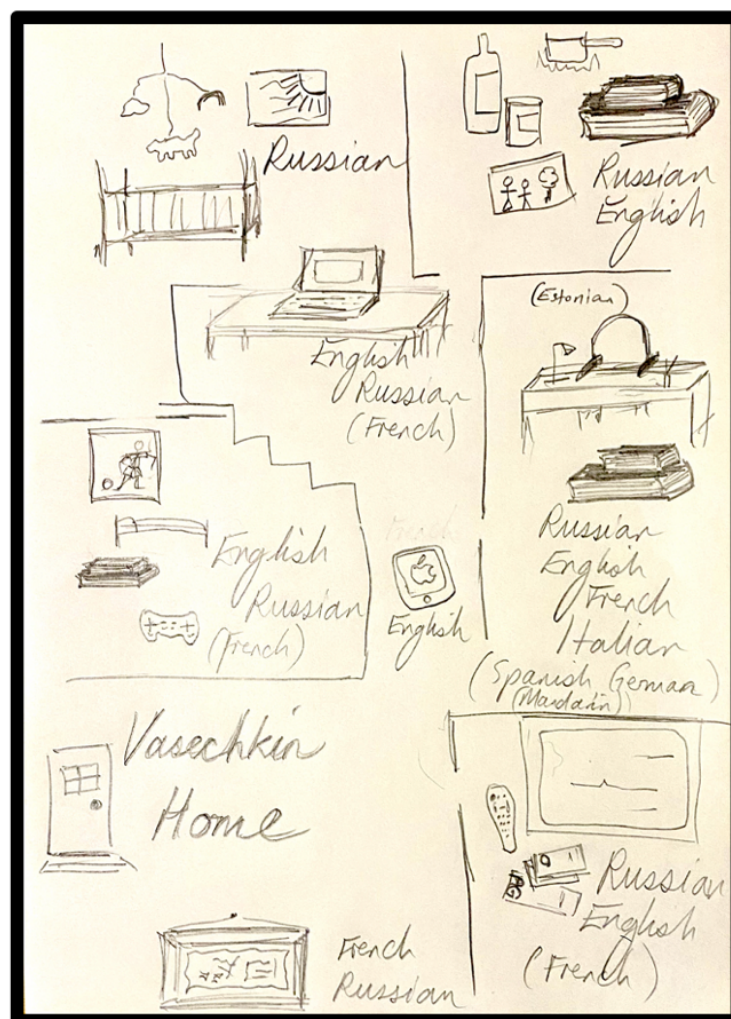 Russian
Russian
English
English
Russian
(French)
(Estonian)
Russian
English
French
Italian
(Spanish German)
(Mandarin)
English
Russian
(French)
French
English
Vasechkin
Home
Russian
English
(French)
French
Russian